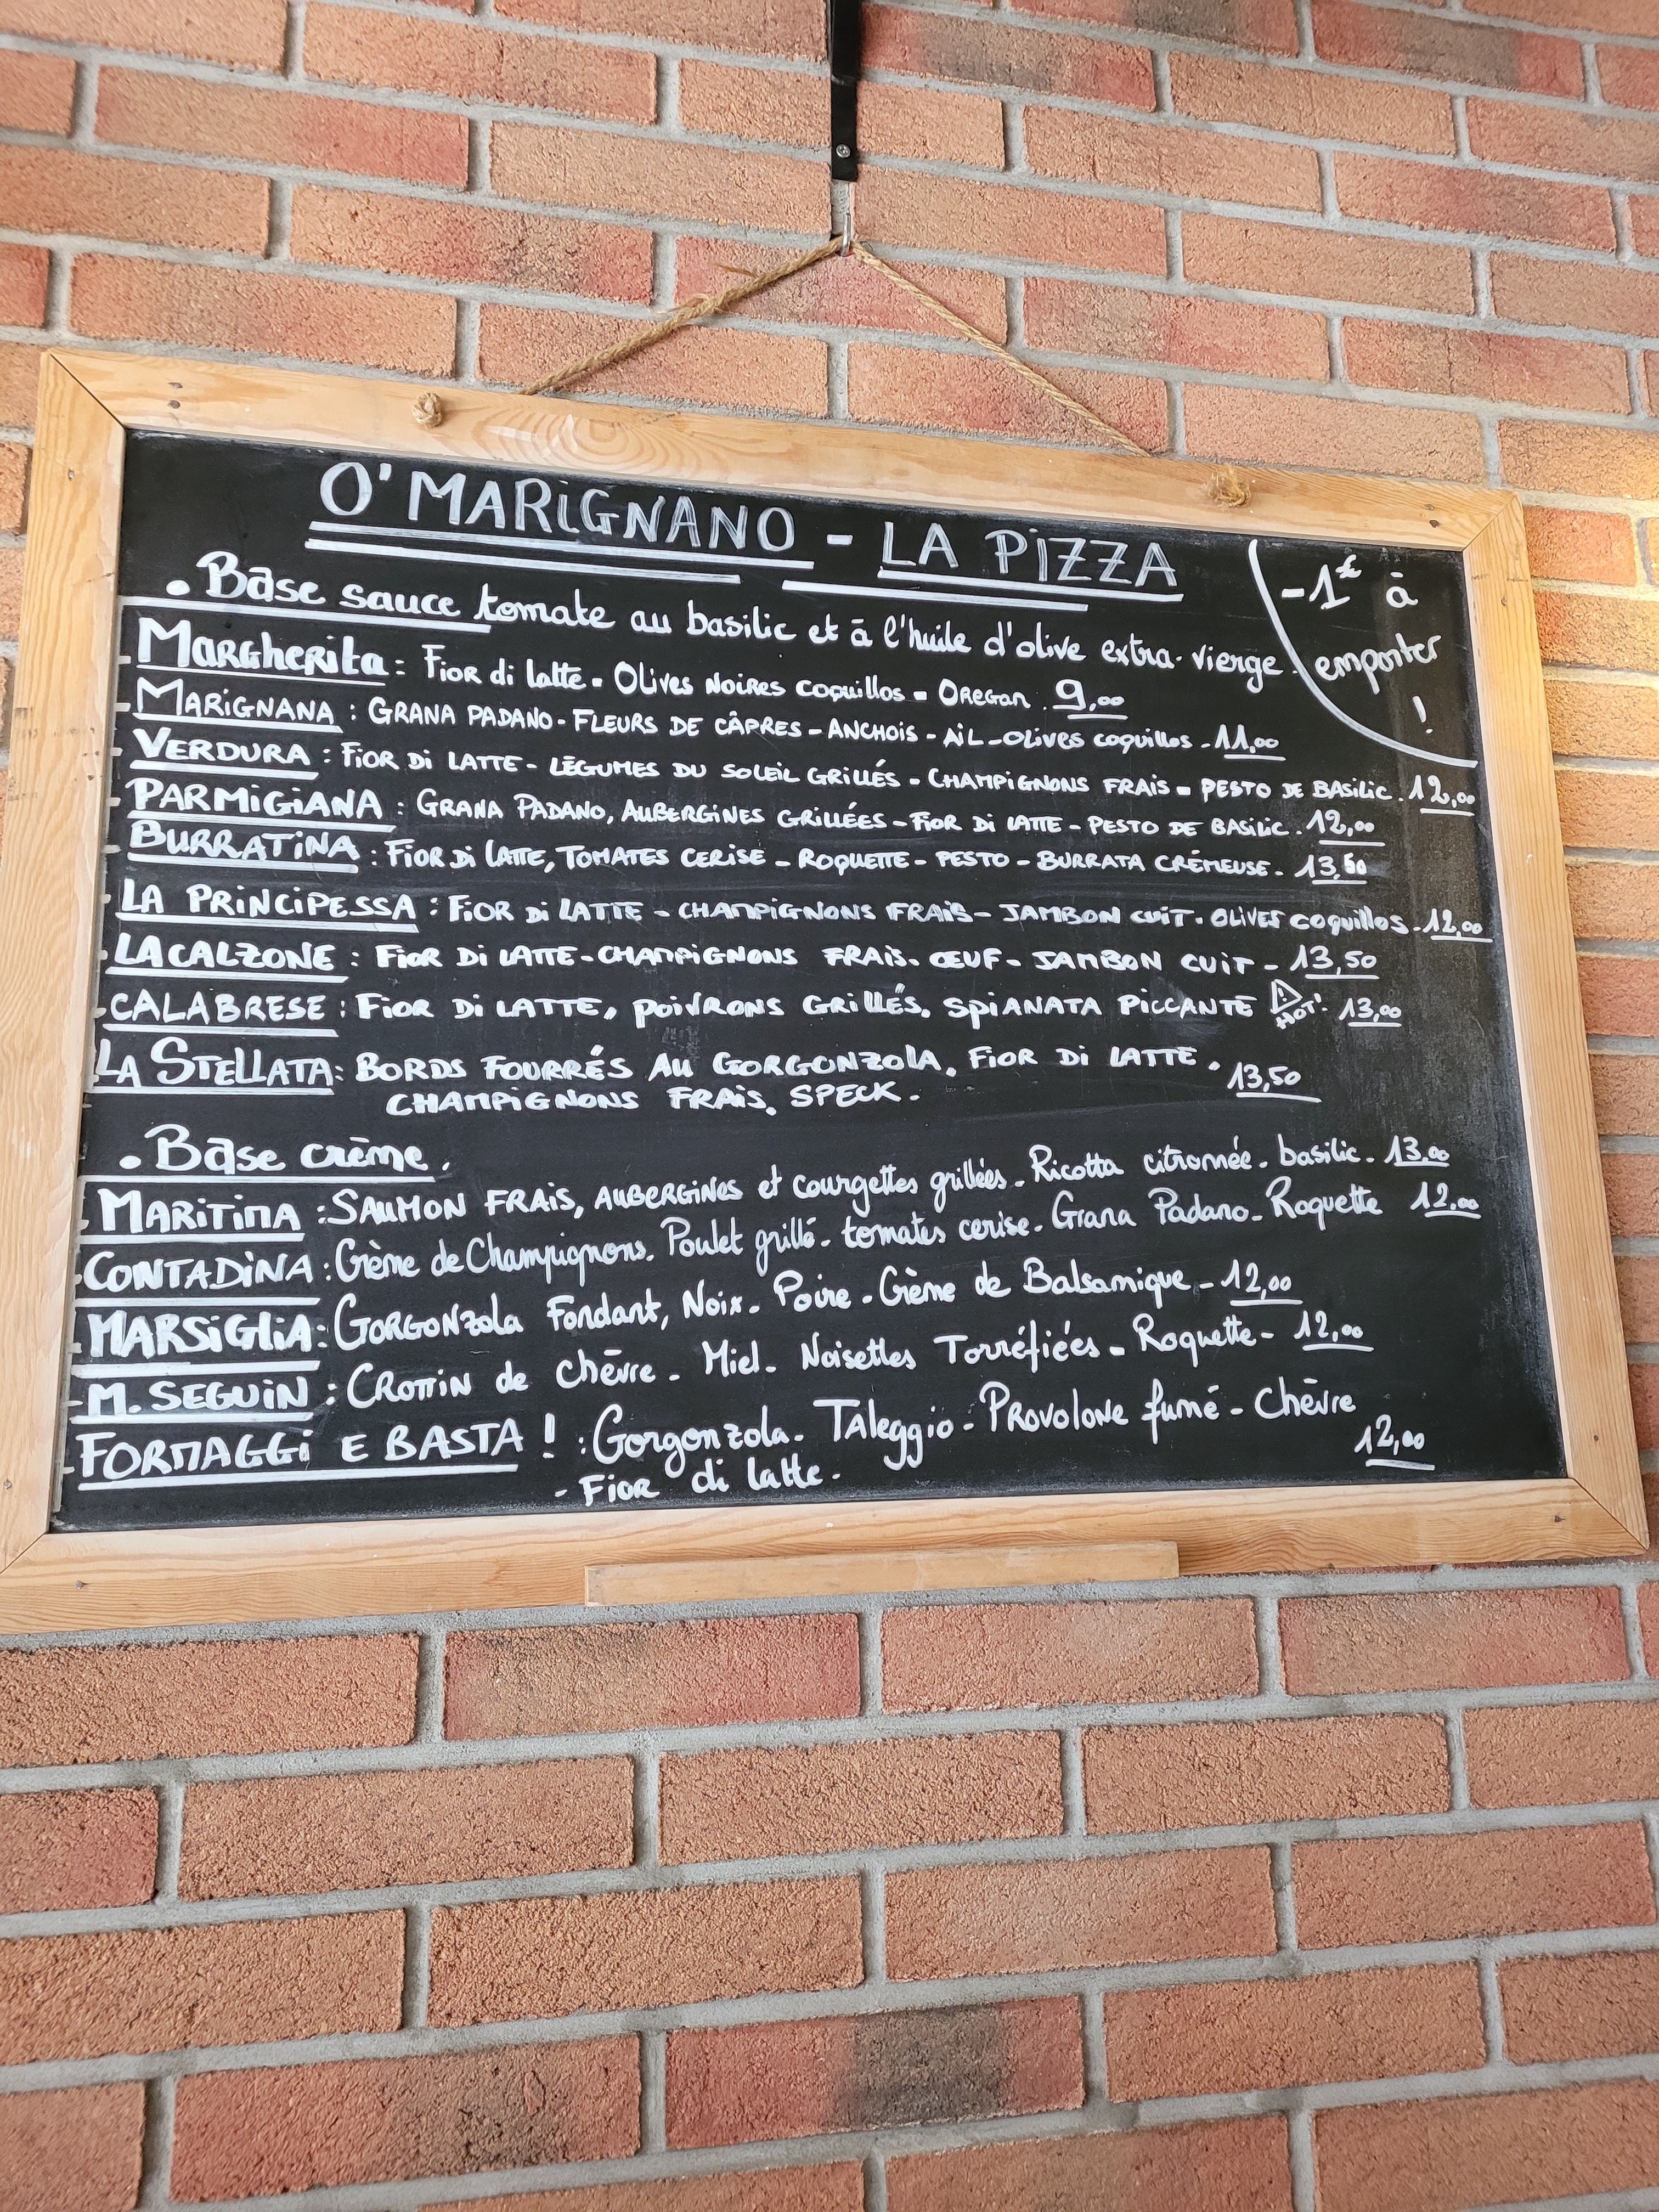 O'MARIGNANO - LA PIZZA
-1€ à
emporter
!
• Base sauce tomate au basilic et à l'huile d'olive extra-vierge.
- Margherita : Fior di latte - Olives Noires coquillos - Oregan. 9,00
- MARIGNANA : GRANA PADANO - FLEURS DE CÂPRES - ANCHOIS - AiL - Olives coquillos - 11,00
- VERDURA : FIOR Di LATTE - LÉGUMES DU SOLEIL GRILLÉS - CHAMPiGNONS FRAIS - PESTO DE BASiLiC. 12,00
- PARMiGiANA : GRANA PADANO, AUBERGINES GRILLÉES - FIOR Di LATTE - PESTO DE BASiLiC. 12,00
- BURRATiNA : FiOR Di LATTE, TOMATES CERISE - ROQUETTE - PESTO - BURRATA CRÉMEUSE. 13,50
- LA PRiNCiPESSA : FiOR Di LATTE - CHAMPiGNONS FRAiS - JAMBON CUiT - OLIVES coquillos - 12,00
- LA CALZONE : FiOR Di LATTE - CHAMPiGNONS FRAiS. ŒUF - JAMBON CUiT - 13,50
- CALABRESE : FIOR Di LATTE, POiVRONS GRiLLÉS. SPiANATA PiCCANTE ! HOT! 13,00
- LA STELLATA : BORDS FOURRÉS AU GORGONZOLA. FiOR Di LATTE.
CHAMPiGNONS FRAiS. SPECK. 13,50
• Base crème.
- MARiTiMA : SAUMON FRAIS, AUBERGINES et courgettes grillées. Ricotta citronnée. basilic. 13,00
- CONTADiNA : Crème de Champignons. Poulet grillé - tomates cerise - Grana Padano - Roquette 12,00
- MARSiGLiA : GORGONzola Fondant, Noix - Poire - Crème de Balsamique - 12,00
- M. SEGUiN : CROTTiN de chèvre - Miel - Noisettes Torréfiées - Roquette - 12,00
- FORMAGGi E BASTA ! : Gorgonzola - TAleggio - PROVOLONE fumé - Chèvre
- FiOR di latte. 12,00